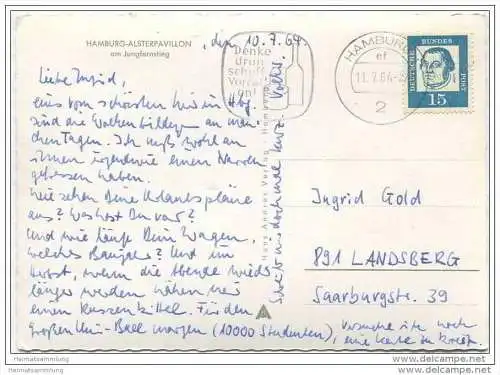 HAMBURG-ALSTERPAVILLON
am Jungfernstieg
den 10.7.64
Liebe Ingrid,
eins vom schönsten hier in Hbg.
sind die Wolkenbildungen an man-
chen Tagen. Ich muß wohl an
ihnen irgendwie einen Narren
gefressen haben.
Wie sehen Deine Urlaubspläne
aus? Was hast Du vor?
Und wie läuft Dein Wagen,
welches Baujahr? Und im
Herbst, wenn die Abende wieder
länger werden nähen wir
einen Russenkittel. Für den
Großen Uni-Ball morgen (10000 Studenten), versuche ich noch
eine Karte zu
Schreib mir doch mal kurz. Volker.
Hans Andres Verlag · Hamburg
Denke
dran
schaff
Vorrat
an!
HAMBURG
11.7.64
2
DEUTSCHE BUNDESPOST
15
Ingrid Gold
891 LANDSBERG
Saarburgstr. 39
Heimatsammlung